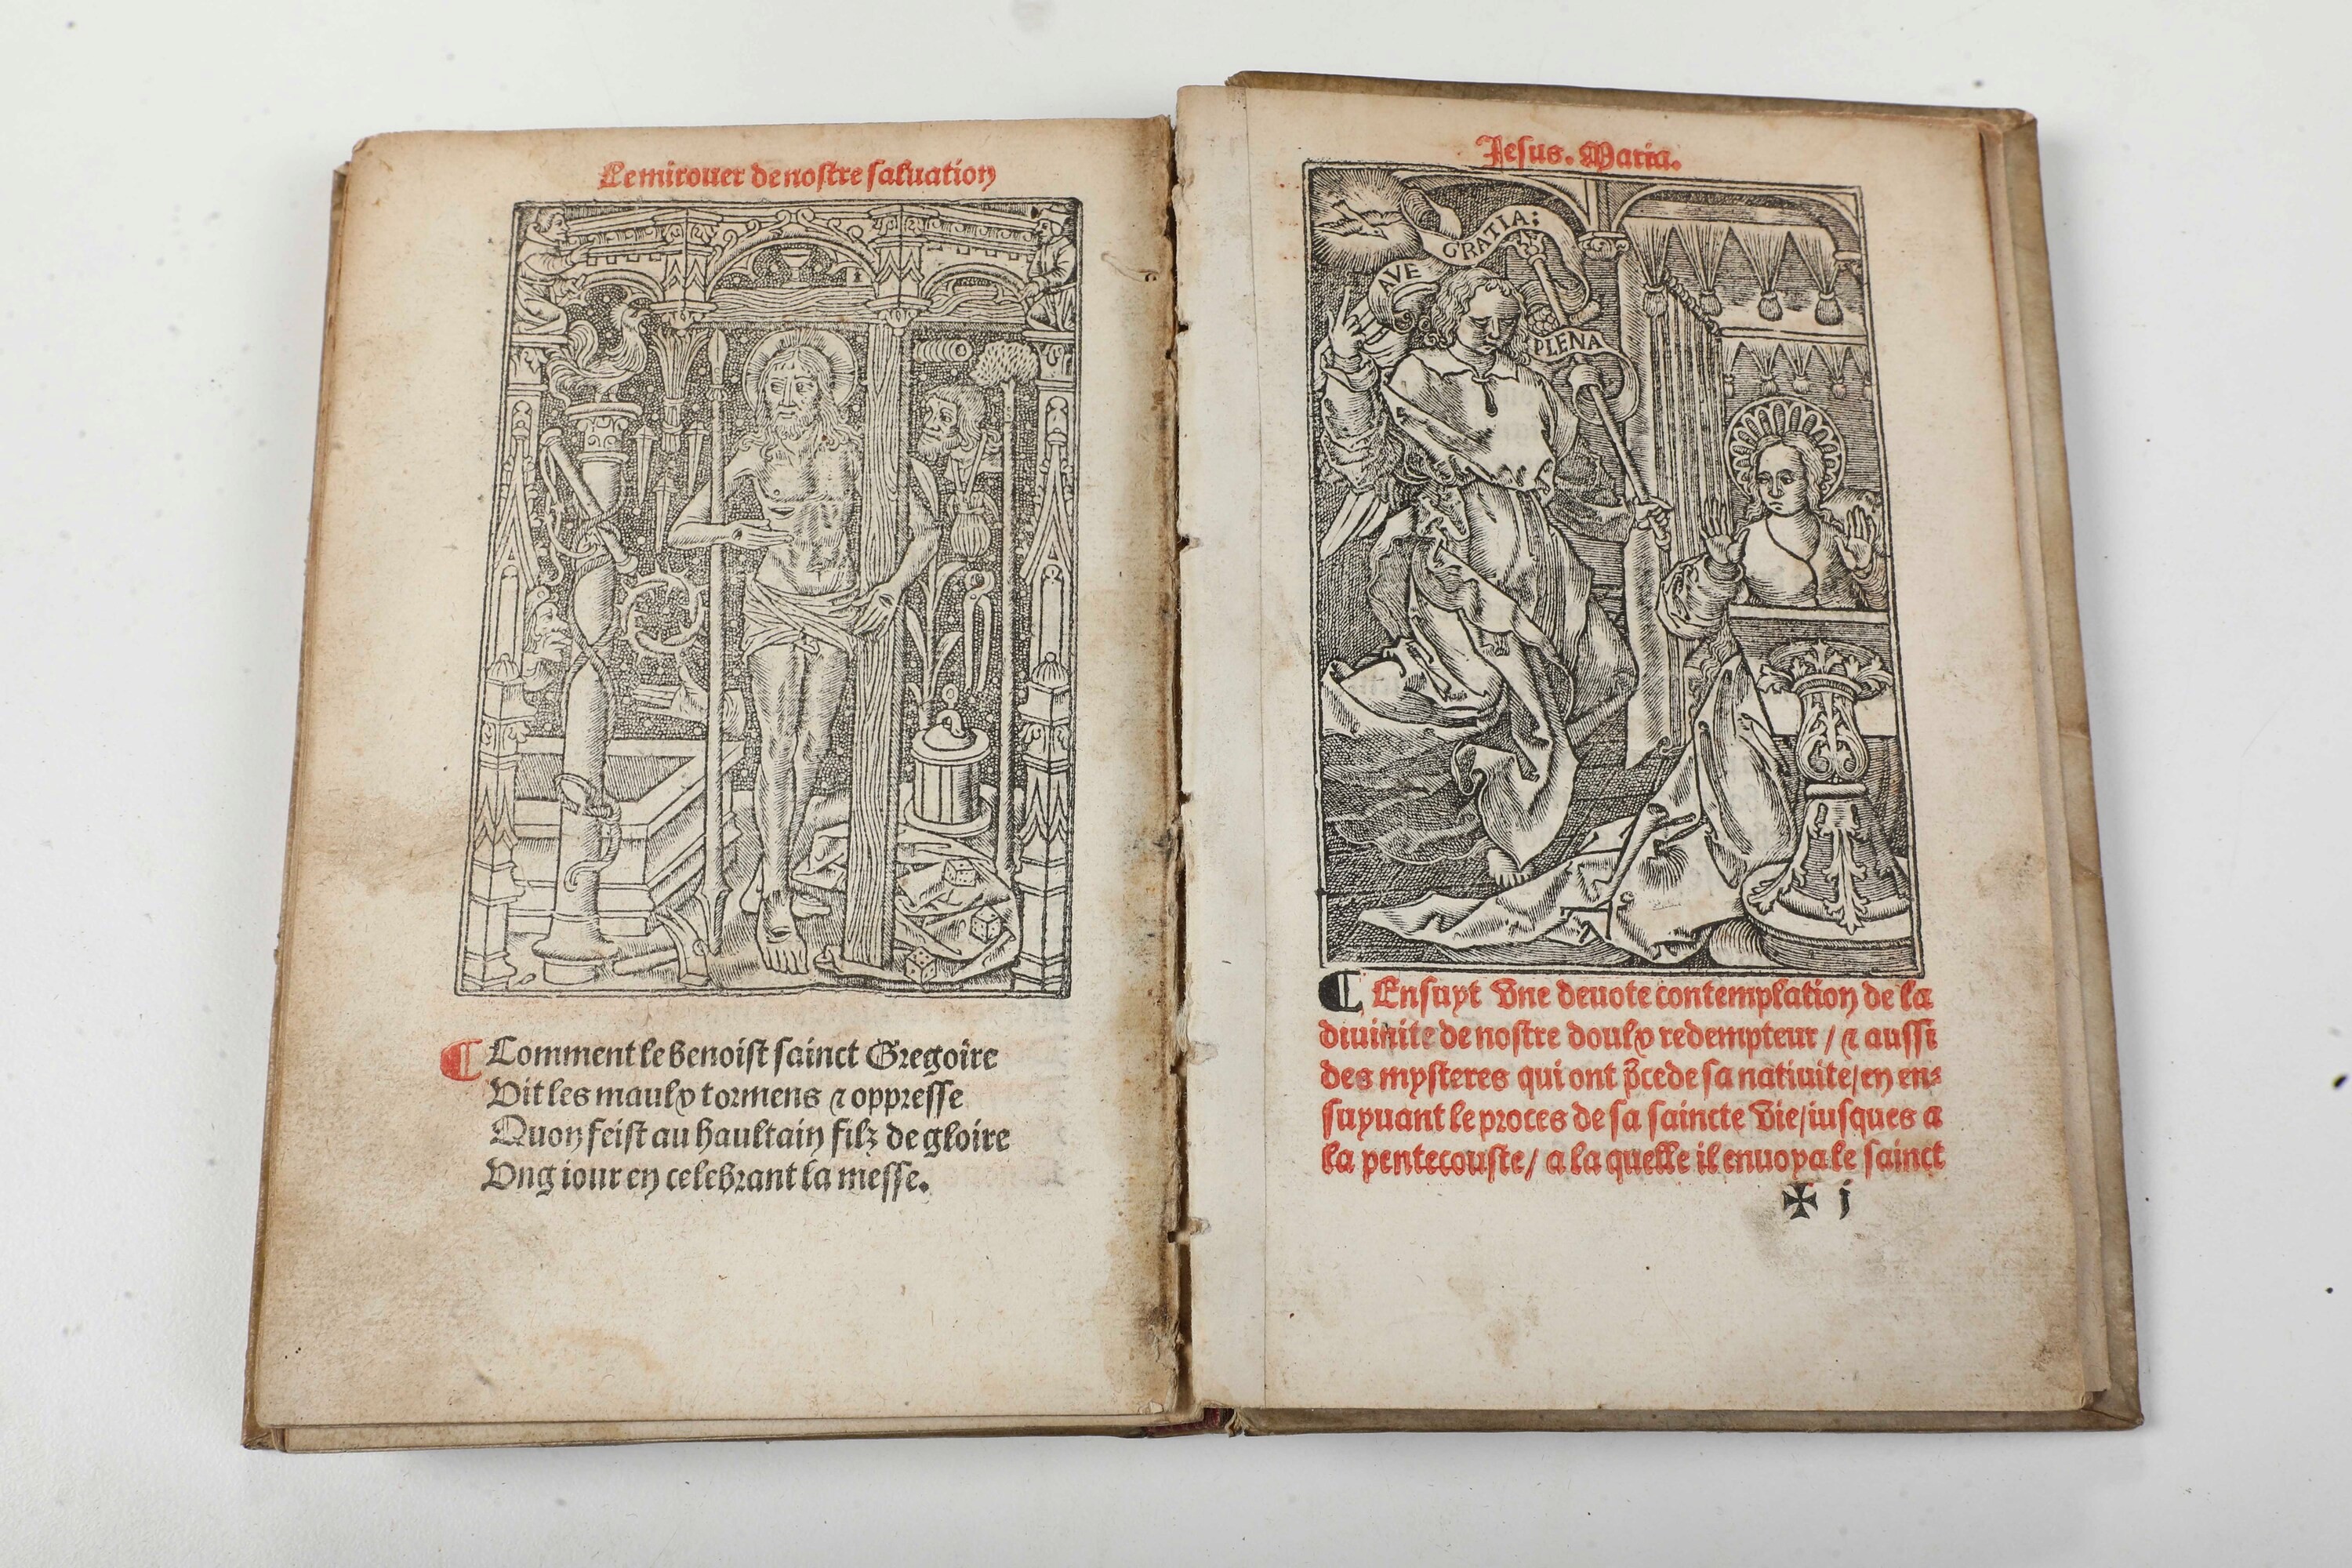 Le mirouer de nostre saluation
¶ Comment le benoist sainct Gregoire
Vit les maulx tormens ⁊ oppresse
Quon feist au haultain filz de gloire
Vng iour en celebrant la messe.
Jesus. Maria.
AVE GRATIA:
PLENA
¶ Ensuyt vne deuote contemplation de la
diuinite de nostre doulx redempteur / ⁊ aussi
des mysteres qui ont p̄cede sa natiuite / en en⸗
suyuant le proces de sa saincte vie / iusques a
la pentecouste / a la quelle il enuoya le sainct
✠ j